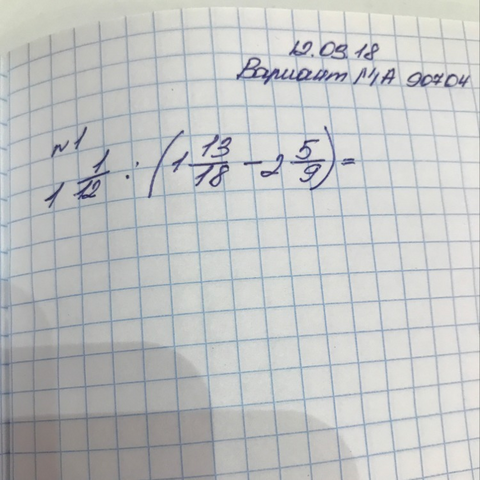 12.09.18
Вариант МА 90704
№1
1 1/12 : (1 13/18 - 2 5/9) =